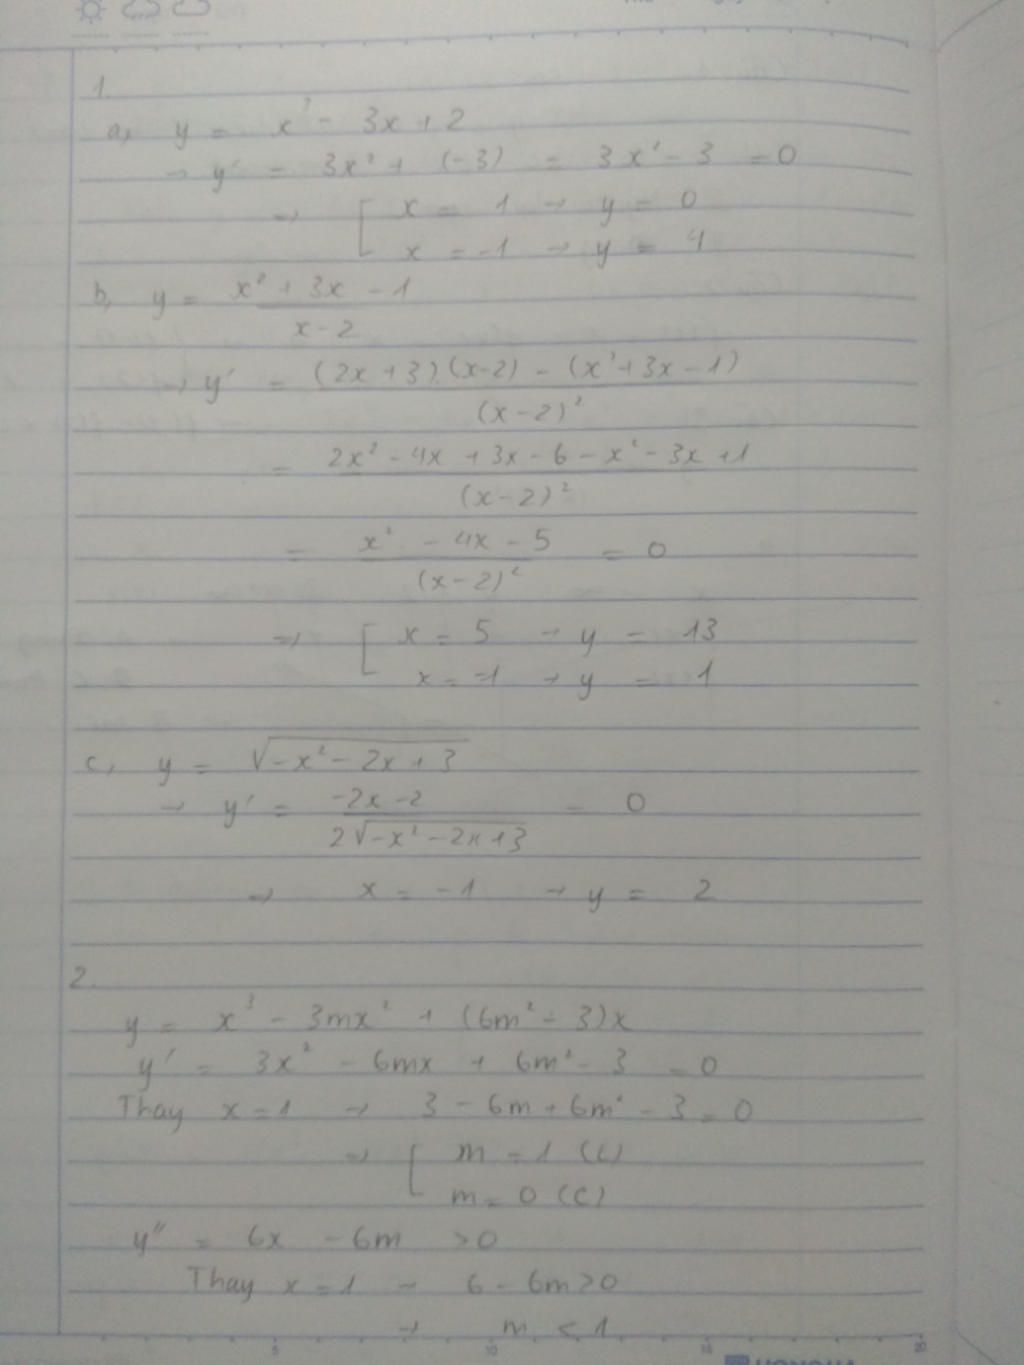 1.
a, y = x³ - 3x + 2
→ y' = 3x² + (-3) = 3x² - 3 = 0
⇒ [ x = 1 → y = 0
x = -1 → y = 4
b, y = (x² + 3x - 1) / (x - 2)
→ y' = ((2x + 3).(x-2) - (x² + 3x - 1)) / (x-2)²
= (2x² - 4x + 3x - 6 - x² - 3x + 1) / (x-2)²
= (x² - 4x - 5) / (x-2)² = 0
⇒ [ x = 5 → y = 13
x = -1 → y = 1
c, y = √(-x² - 2x + 3)
→ y' = (-2x - 2) / (2√(-x² - 2x + 3)) = 0
⇒ x = -1 → y = 2
2.
y = x³ - 3mx² + (6m² - 3)x
y' = 3x² - 6mx + 6m² - 3 = 0
Thay x = 1 → 3 - 6m + 6m² - 3 = 0
⇒ [ m = 1 (L)
m = 0 (C)
y'' = 6x - 6m > 0
Thay x = 1 → 6 - 6m > 0
→ m < 1
5 10 15 20